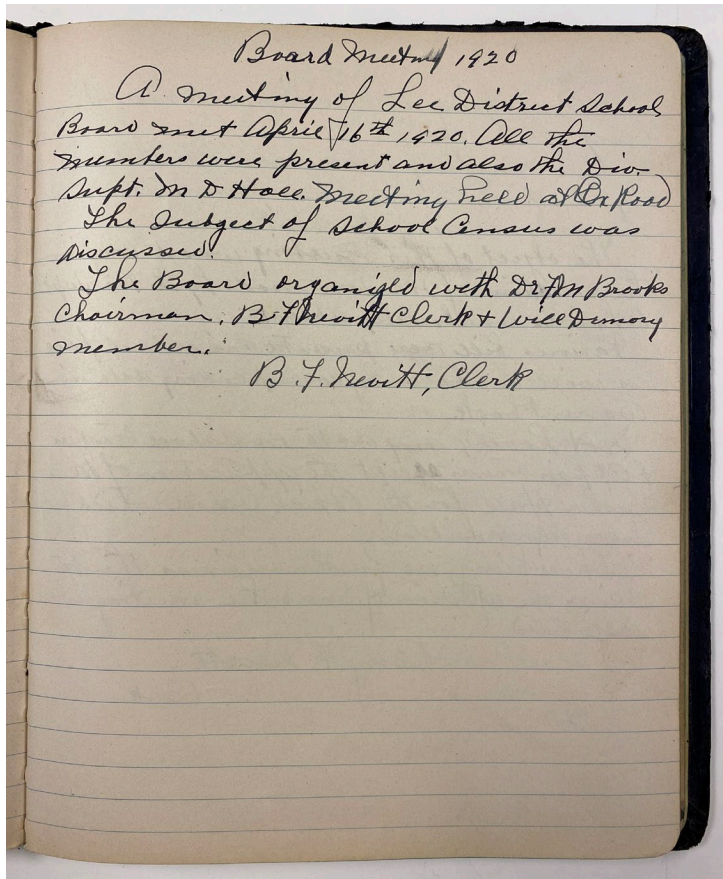 Board Meeting 1920
A meeting of Lee District School
Board met April 16th 1920. All the
members were present and also the Div.
Supt. M D Hall. Meeting held at Ox Road
The subject of School Census was
discussed.
The Board organized with Dr F M Brooks
Chairman, B. F. Nevitt Clerk + Will Dimory
member.
B. F. Nevitt, Clerk